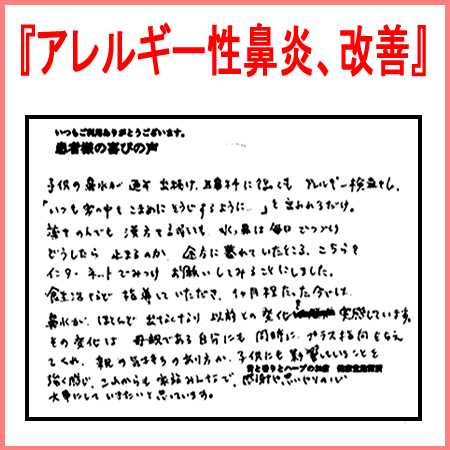 『アレルギー性鼻炎、改善』
いつもご利用ありがとうございます。
患者様の喜びの声
子供の鼻水が 出続け、耳鼻科に行くも アレルギー検査をし、
「いつも家の中を こまめに そうじするように…」と言われるだけ。
薬をのんでも 漢方でも 水っ鼻は毎日でつづけ
どうしたら 止まるのか、途方に暮れていたところ、こちらを
インターネットでみつけ お願いしてみることにしました。
食生活など 指導していただき、1ヶ月程たった今では、
鼻水が、ほとんど 出なくなり 以前との変化 実感しています。
その変化は 母親である自分にも 同時に、プラス指向を与え
てくれ、親の気持ちのあり方が、子供にも影響していることを
強く感じ、これからも 家族みんなで、感謝や思いやりの心
大事にしていきたいと思っています。